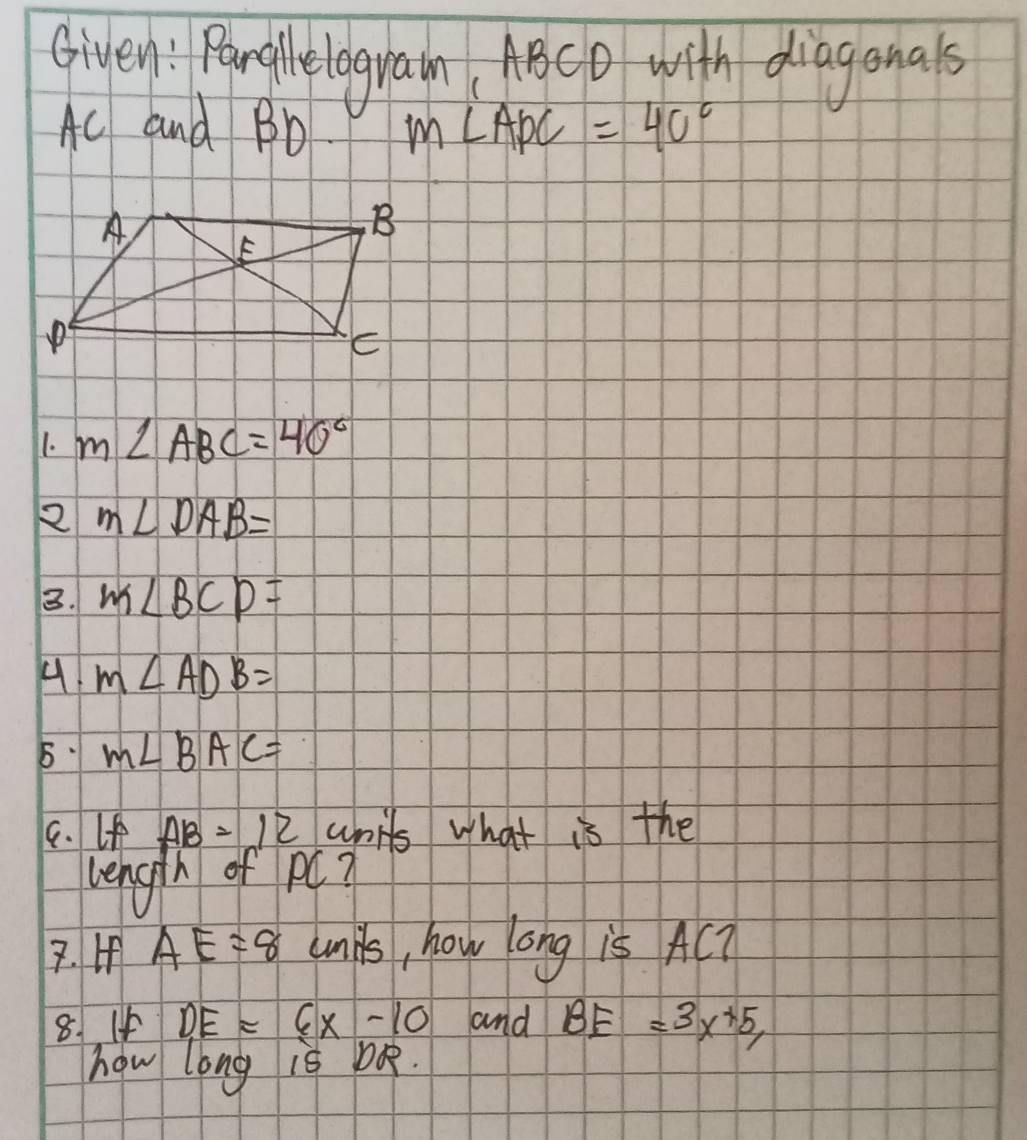 Given: Parallelogram, ABCD with diagonals
AC and BD. m∠ADC = 40°
A
B
E
D
C
1. m∠ABC=40°
2 m∠DAB=
3. m∠BCD=
4. m∠ADB=
5. m∠BAC=
6. If AB = 12 units what is the
length of DC?
7. If AE=8 units, how long is AC?
8. If DE = 6x -10 and BE =3x+5,
how long is DB.